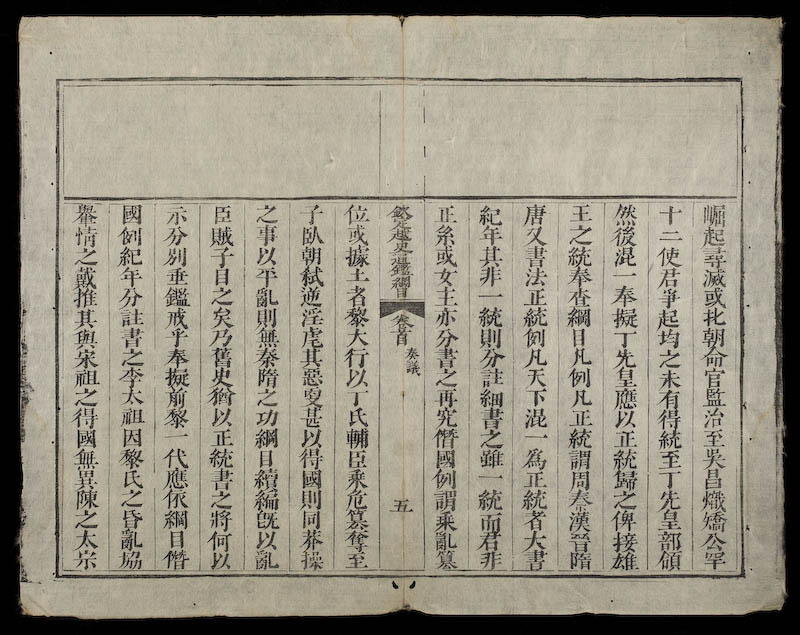 崛起尋滅或北朝命官監治至吳昌熾矯公罕
十二使君爭起均之未有得統至丁先皇部領
然後混一奉擬丁先皇應以正統歸之俾接雄
王之統奉查綱目凡例凡正統謂周秦漢晉隋
唐又書法正統例凡天下混一為正統者大書
紀年其非一統則分註細書之雖一統而君非
正系或女主亦分書之再究僭國例謂乘亂篡
欽定越史通鑑綱目 卷首 奏議 五
位或據土者黎大行以丁氏輔臣乘危篡奪至
子臥朝弒逆淫虐其惡叟甚以得國則同莽操
之事以平亂則無秦隋之功綱目續編旣以亂
臣賊子目之矣乃舊史猶以正統書之將何以
示分別垂鑑戒乎奉擬前黎一代應依綱目僭
國例紀年分註書之李太祖因黎氏之昏亂協
羣情之戴推其與宋祖之得國無異陳之太宗